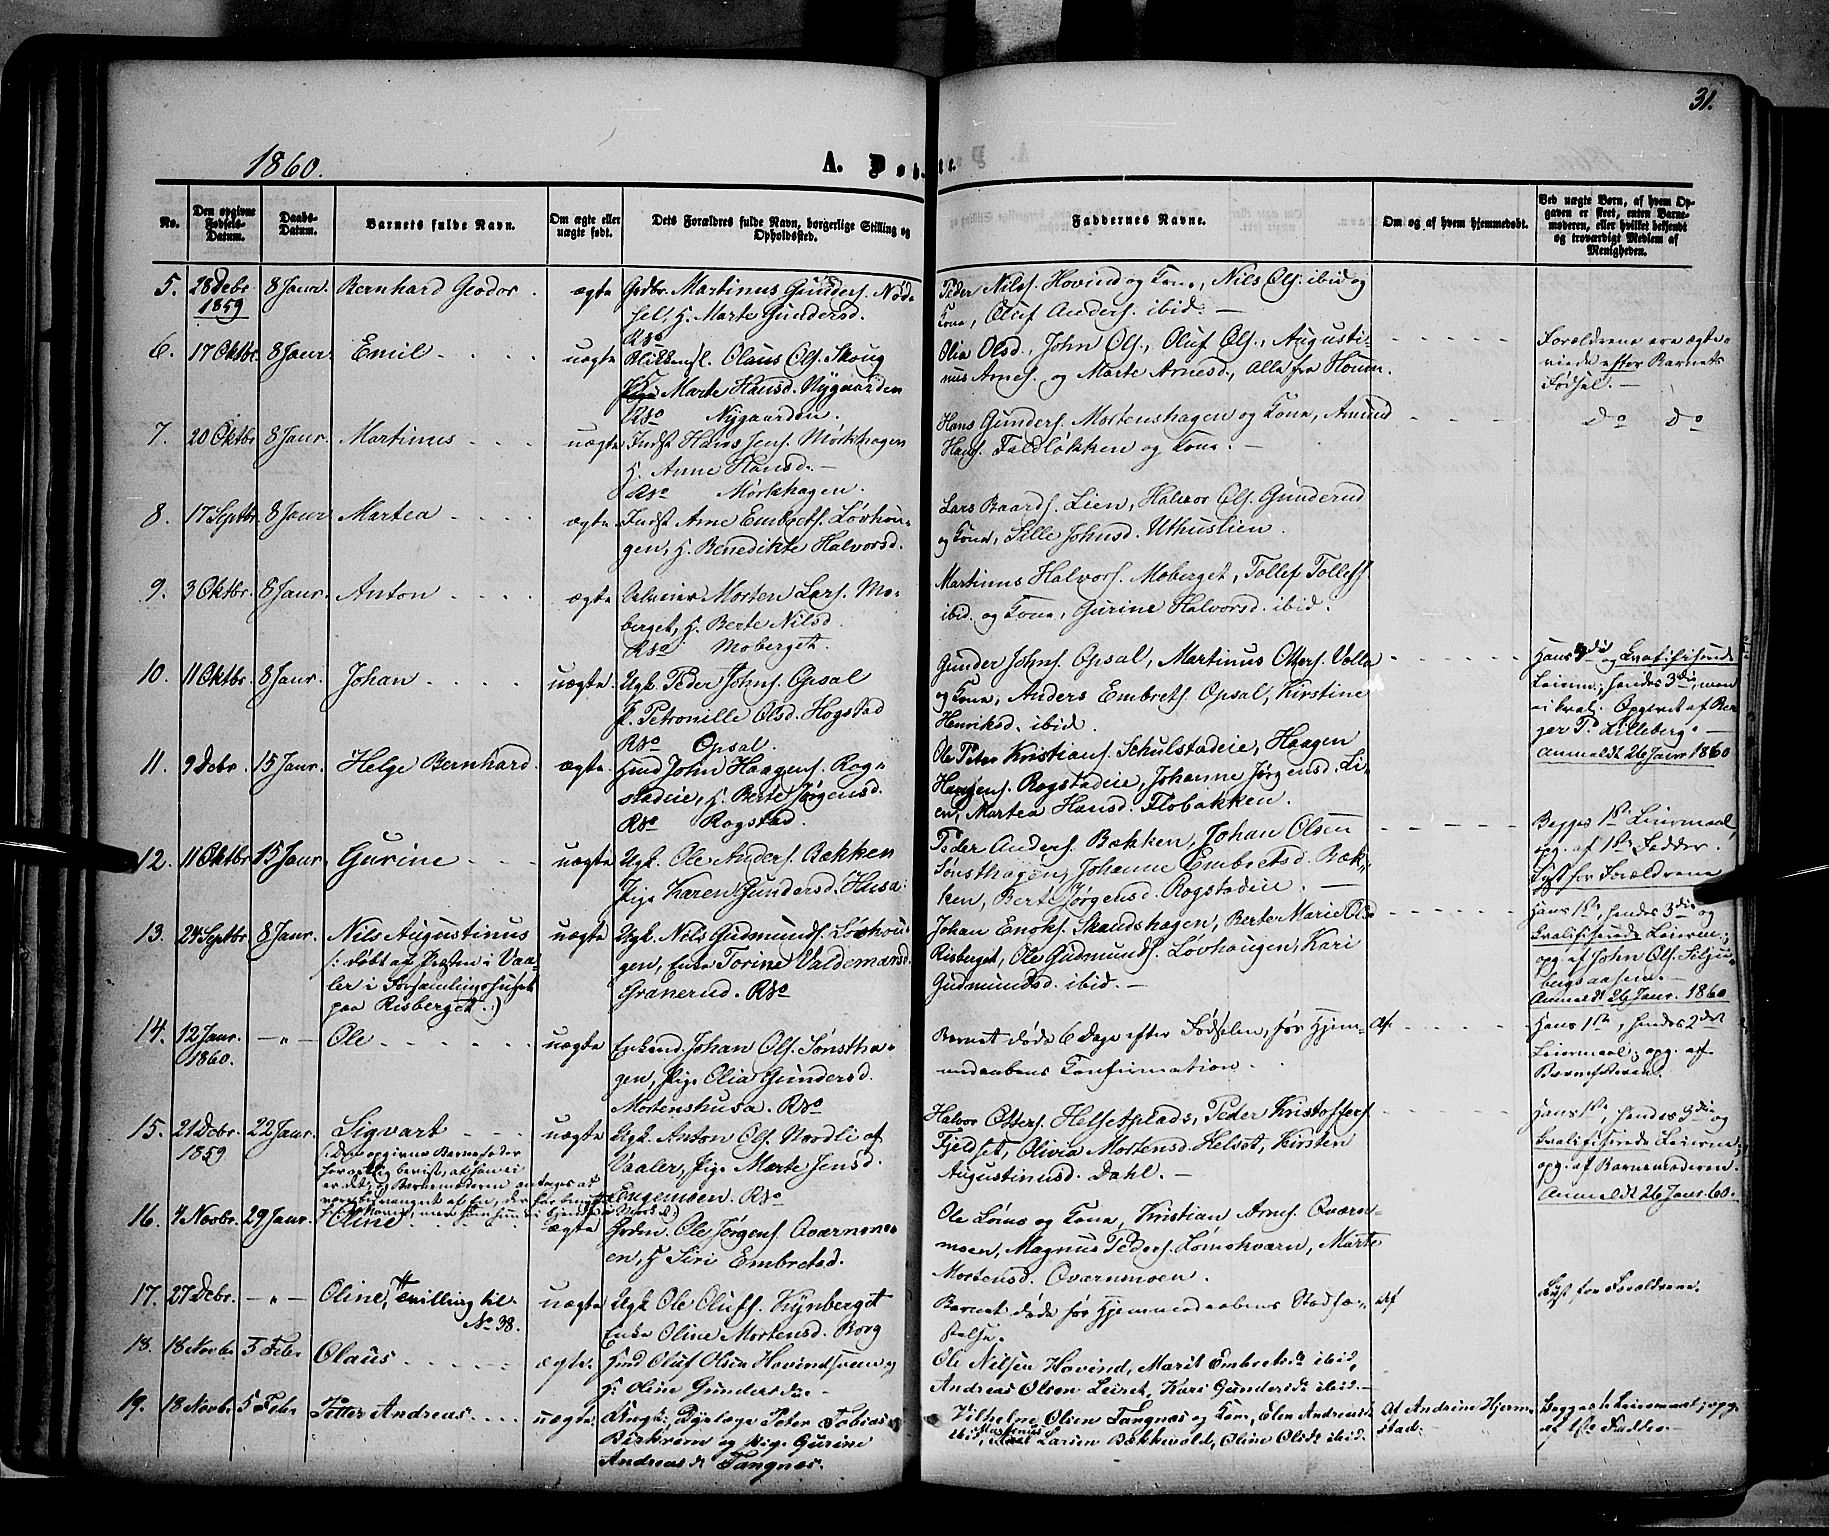 31.
1860.
A. Døb- te.
No.
Den opgivne Fødsels-Datum.
Daabs-Datum.
Barnets fulde Navn.
Om ægte eller uægte født.
Dets Forældres fulde Navn, borgerlige Stilling og Opholdssted.
Faddernes Navne.
Om og af hvem hjemmedøbt.
Ved uægte Børn, af hvem Opgaven er skeet, enten Barnemoderen, eller hvilket bekjendt og troværdigt Medlem af Menigheden.
5. 28 Debr 1859 8 Janr. Bernhard Geodor ægte
Grdbr. Martinus Gunders. Nød-
sel, H. Marte Gundersd.
Peder Nilss. Hovind og Kone, Nils Ols. ibid og
Kone, Oluf Anders. ibid. —
6. 17 Oktbr. 8 Janr Emil uægte
Olaus Ols. Skoug
Marte Hansd. Nygaarden
Nygaarden.
Olia Olsd., John Ols., Oluf Ols., Augusti-
nus Arnes. og Marte Arnesd., Alle fra Houm.
Forældrene ere ægte-
viede efter Barnets
Fødsel. —
7. 20 Oktbr 8 Janr. Martinus uægte
Indst Hans Jens. Mørkhagen
H. Anne Hansd. —
Mørkhagen.
Hans Gunders. Mortenshagen og Kone, Amund
Hans. Faldløkken og Kone. —
Do Do
8. 17 Septbr. 8 Janr Martea ægte
Indst Arne Embrets. Løvhou-
gen, H. Benedikte Halvorsd.
Lars Baards. Lien, Halvor Ols. Gunderud
og Kone, Sille Johnsd. Uthuslien.
9. 3 Oktbr. 8 Janr. Anton ægte
Morten Lars. Mo-
berget, H. Berte Nilsd.
Moberget.
Martinus Halvors. Moberget, Tollef Tollefs.
ibid. og Kone, Gurine Halvorsd. ibid.
10. 11 Oktbr. 8 Janr. Johan uægte
Ugk. Peder Johns. Opsal
P. Petronille Olsd. Hogstad
Opsal.
Gunder Johns. Opsal, Martinus Otters. Volla
og Kone, Anders Embrets. Opsal, Kirstine
Henriksd. ibid.
Hans 3die og kvalificerende
Leierm., hendes 3die, men
ei kval. Opgivet af
Lilleberg. —
Anmeldt 26 Janr 1860
11. 9 Debr. 15 Janr. Helge Bernhard. ægte
Hmd John Haagens. Rog-
stadeie, H. Berte Jørgensd.
Rogstad.
Ole Peter Kristians. Schulstadeie, Haagen
Haagens. Rogstadeie, Johanne Jørgensd. Li-
en, Martea Hansd. Flobakken.
12. 11 Oktbr 15 Janr Gurine uægte
Ugk. Ole Anders. Bækken
Pige Karen Gundersd. Husa
Peder Anders. Bækken, Johan Olsen
Sønsthagen, Johanne Embretsd. Bæk-
ken, Berte Jørgensd. Rogstadeie. —
Begges 1ste Leiermaal,
opg. af 1ste Fadder.
Lyst for Forældrene
13. 24 Septbr 8 Janr. Nils Augustinus uægte
/: døbt af Præsten i Vaa-
ler i Forsamlingshuset
paa Risberget. :/
Ugk. Nils Gudmunds. Løvhou-
gen, Enke Torine Valdemarsd.
Granerud.
Johan Enoks. Skandshagen, Berte Marie Olsd
Risberget, Ole Gudmunds. Løvhaugen, Kari
Gudmundsd. ibid. —
Hans 1ste, hendes 3die og
kvalificerede Leierm.,
opg. af John Ols.
Anmeldt 26 Janr. 1860
14. 12 Janr. 1860. —„— Ole uægte
Enkemd. Johan Ols. Sønstha-
gen, Pige Olia Gundersd.
Mortenshusa.
Barnet døde 6 Dage efter Fødselen, før Hjem-
medaabens Confirmation.
Af
Hans 1ste, hendes 2det
Leiermaal, opg. af
Barnefaderen.
15. 21 Debr. 1859 22 Janr. Sigvart uægte
Ugk. Anton Ols. Nordli af
Vaaler, Pige Marte Jensd.
Engemoen.
Halvor Otters. Helsetplads, Peder Kristoffers.
Fjeldset, Olivia Mortensd. Helset, Kirsten
Augustinusd. Dahl. —
Hans 1ste, hendes 3die og
kvalificerede Leierm.;
opg. af Barnemoderen.
Anmeldt 26 Janr. 60.
16. 4 Novbr. 29 Janr. Oline ægte
Ole Jørgens. Qværnmo-
en, H. Siri Embretsd.
Ole Løms og Kone, Kristian Arnes. Qværn-
moen, Magnus Peders. Lømskværn, Marte
Mortensd. Qværnmoen.
17. 27 Debr. —„— Oline, Tvilling til No 38. uægte
Ugk Ole Olufs. Kynberget
Enke Oline Mortensd. Borg
Barnet døde før Hjemmedaabens Stadfæ-
stelse.
Af
Lyst for Forældrene.
18. 18 Novbr 5 Febr Olaus ægte.
Hmd Oluf Olsen Hovindsveen og
H. Oline Gundersdr. —
Ole Nilsen Hovind, Marit Embretsdr ibid,
Andreas Olsen Leiret, Kari Gundersdr ibid. —
19. 18 Novbr 5 Febr Petter Andreas uægte.
Peter Tobias
Birkrem og pige Gurine
Andreasdr Tangnæs.
Vilhelm Olsen Tangnæs og Kone, Elen Andreasdr
ibid, Larsen Bækkevold, Oline Olsdr ibid.
At Andrine Hjerm-
stad.
Begges 1ste Leiermaal; opg.
af 1ste Fadder